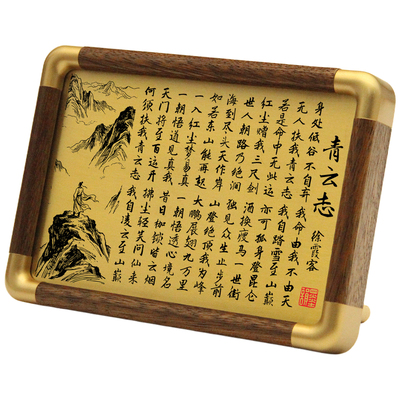 青云志
徐霞客
身处低谷不自弃 我命由我不由天
无人扶我青云志 我自踏雪至山巅
若是命中无此运 亦可孤身登昆仑
红尘赠我三尺剑 酒换瘦马一世街
世人朝路乃绝涧 独见众生止步前
海到尽头天作岸 山登绝顶我为峰
如若东山能再起 大鹏展翅九万里
一入红尘梦易真 一朝悟透心境名
一朝悟道见真我 昔日枷锁皆云烟
天门将至百运开 拂尘轻笑问仙来
何须扶我青云志 我自凌云至山巅